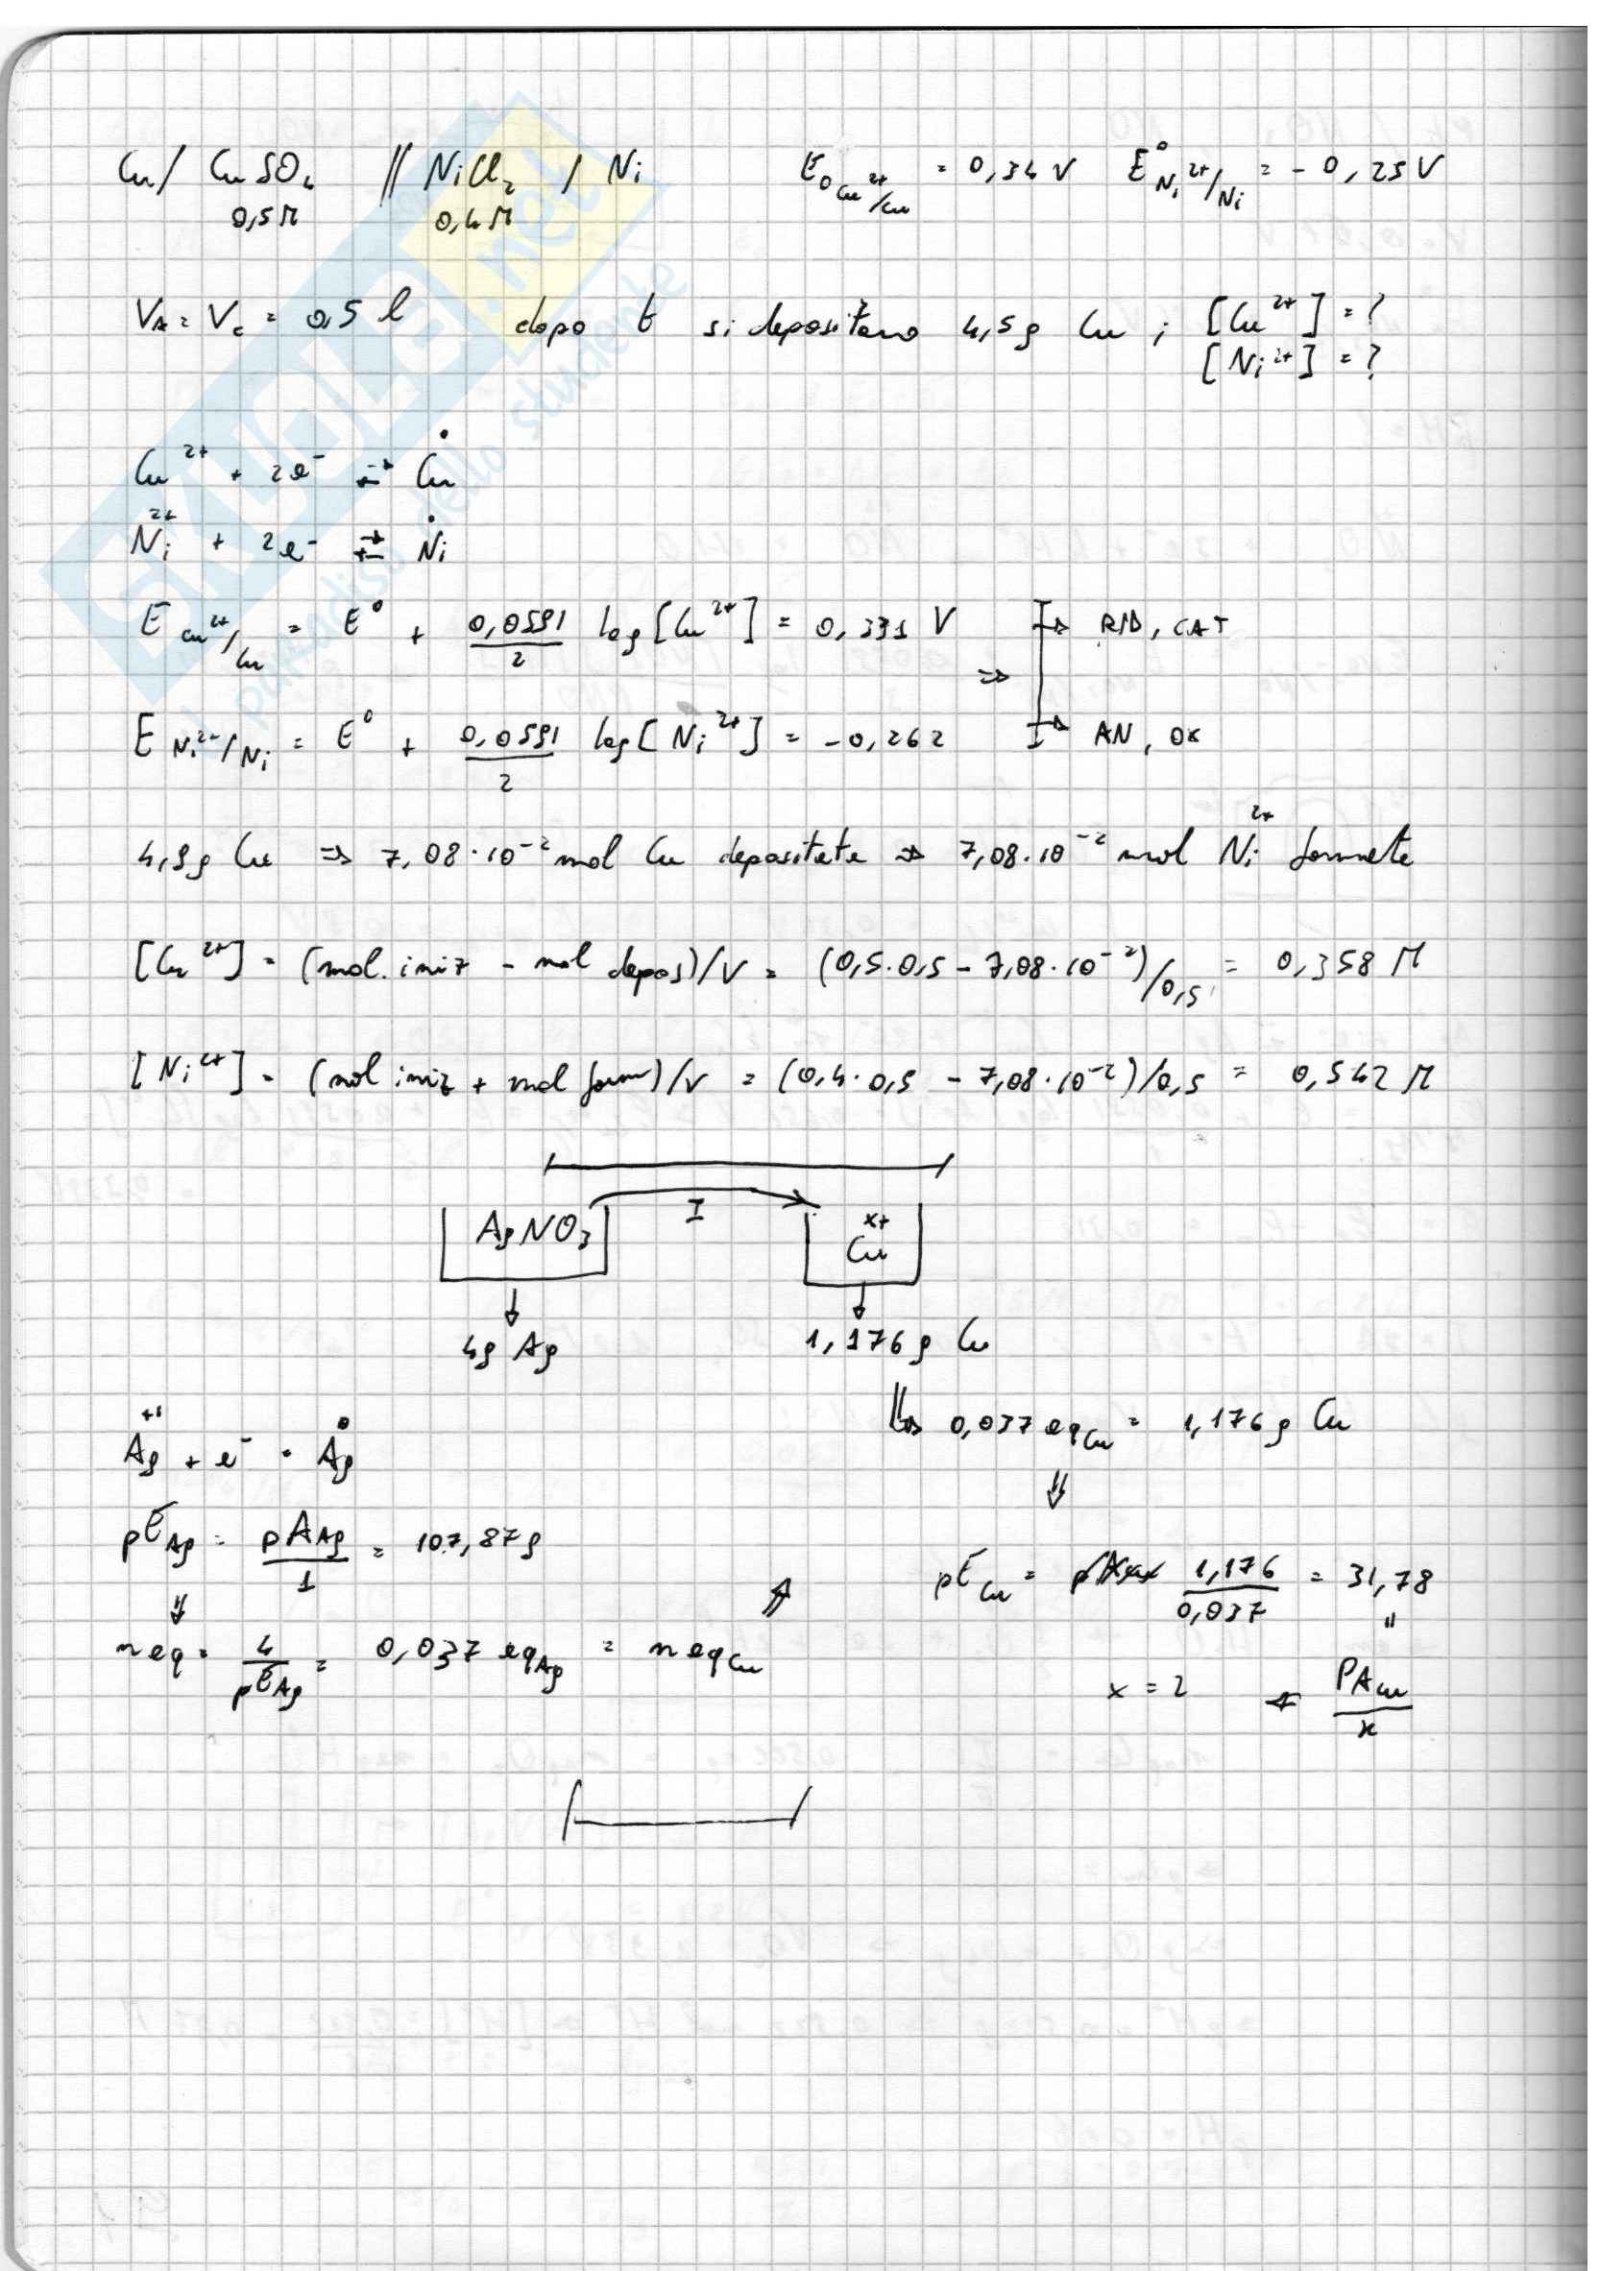 Cu / CuSO₄ // NiCl₂ / Ni E₀ Cu²⁺/Cu = 0,34 V E° Ni²⁺/Ni = - 0,25 V
0,5 M 0,4 M
V_A = V_C = 0,5 l dopo t si depositano 4,5 g Cu ; [Cu²⁺] = ?
[Ni²⁺] = ?
Cu²⁺ + 2e⁻ ⇄ Cu
Ni²⁺ + 2e⁻ ⇄ Ni
E Cu²⁺/Cu = E⁰ + 0,0591/2 log [Cu²⁺] = 0,331 V ⇒ → RID, CAT
E Ni²⁺/Ni = E⁰ + 0,0591/2 log [Ni²⁺] = -0,262 → AN, OX
4,5 g Cu ⇒ 7,08·10⁻² mol Cu depositate ⇒ 7,08·10⁻² mol Ni²⁺ formate
[Cu²⁺] = (mol. iniz - mol depos)/V = (0,5·0,5 - 7,08·10⁻²)/0,5 = 0,358 M
[Ni²⁺] = (mol iniz + mol form)/V = (0,4·0,5 - 7,08·10⁻²)/0,5 = 0,542 M
AgNO₃ I Cu^x+
4g Ag 1,176 g Cu
⇒ 0,037 eq Cu = 1,176 g Cu
Ag⁺¹ + e⁻ = Ag
pE Ag = pA Ag/1 = 107,87 g
pE Cu = 1,176/0,037 = 31,78
n eq = 4/pE Ag = 0,037 eq Ag = n eq Cu
x = 2 ⇐ PA Cu/x
SKUOLA.net
il paradiso dello studente